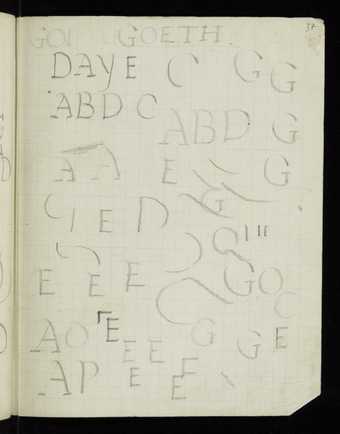 GOETH.
DAYE C G G
ABDC
ABD G
A A E G
C I E D G
E E E G O C
A O E G G E
E E
A P E E E